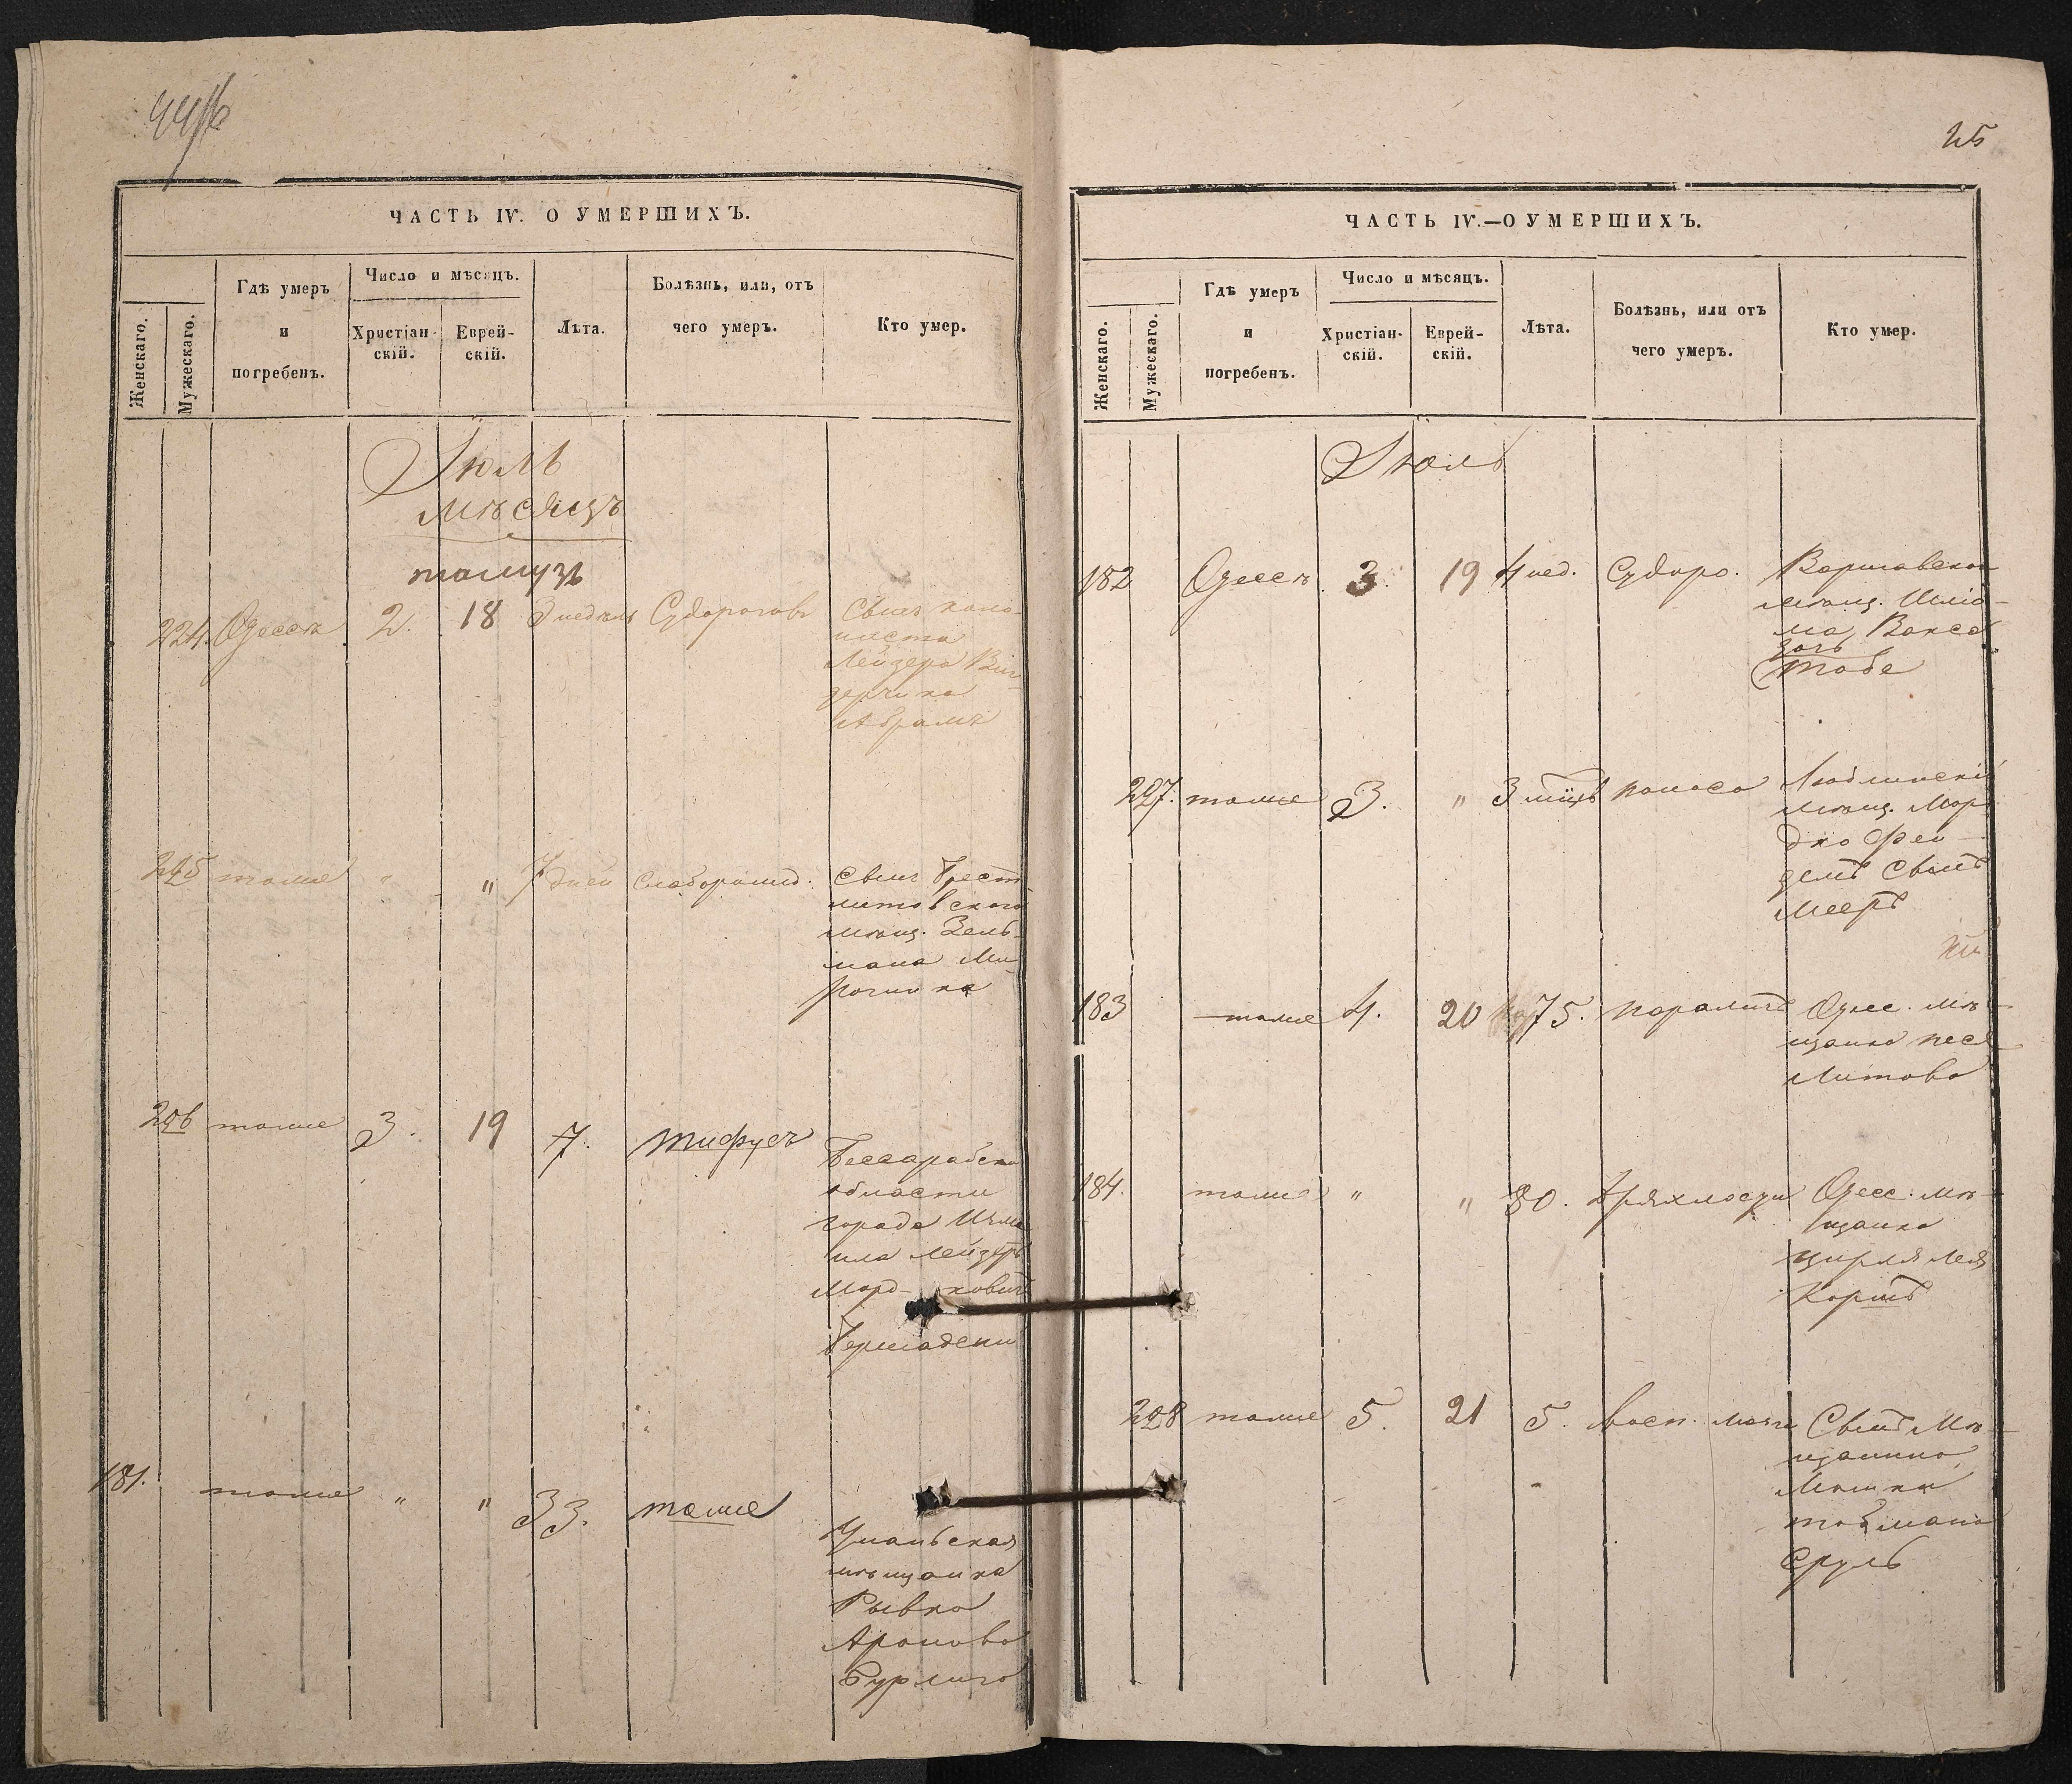 25
ЧАСТЬ IV. О УМЕРШИХЪ.
Женскаго.
Мужескаго.
Гдѣ умеръ
и
погребенъ.
Число и мѣсяцъ.
Христіан-
скій.
Еврей-
скій.
Лѣта.
Болѣзнь, или, отъ
чего умеръ.
Кто умер.
Іюль
мѣсяцъ
тамузъ
224. Одессѣ 2. 18 3 недѣль Судорогов Сынъ коло-
ниста
Лейзера Вин-
дерчика
Абрамъ
225 тоже " " 7 дней Слаборожд. Сынъ Брест
литовскаго
мѣщ. Зель-
мана Ми-
226 тоже 3. 19 7. тифусъ
Бессарабско
области
города Изма
ила Лейзеръ
Морд-ковичъ
Бершадски
181. тоже " " 33. тоже
Уманьская
мѣщанка
Рывка
Аронова
Бурлиго
ЧАСТЬ IV.—О УМЕРШИХЪ.
Женскаго.
Мужескаго.
Гдѣ умеръ
и
погребенъ.
Число и мѣсяцъ.
Христіан-
скій.
Еврей-
скій.
Лѣта.
Болѣзнь, или отъ
чего умеръ.
Кто умер.
Іюль
182 Одессѣ 3. 19 4 нед. Судоро. Варшавскаг
мѣщ. Шліо-
ма Вакса
дочь
Тобе
227. тоже 3. " 3 мѣц. поноса Люблинскій
мѣщ. Мор
дко Фей-
делъ Сынъ
Мееръ
183 тоже 4. 20 75. параличъ Одес. мѣ-
щанка песя
Литова
184. тоже " " 80. дряхлости Одесс. мѣ-
щанка
цирля Лея
Коршъ
228 тоже 5. 21 5. Восп. мозга Сынъ Мѣ-
щанина
Мошки
Сруль